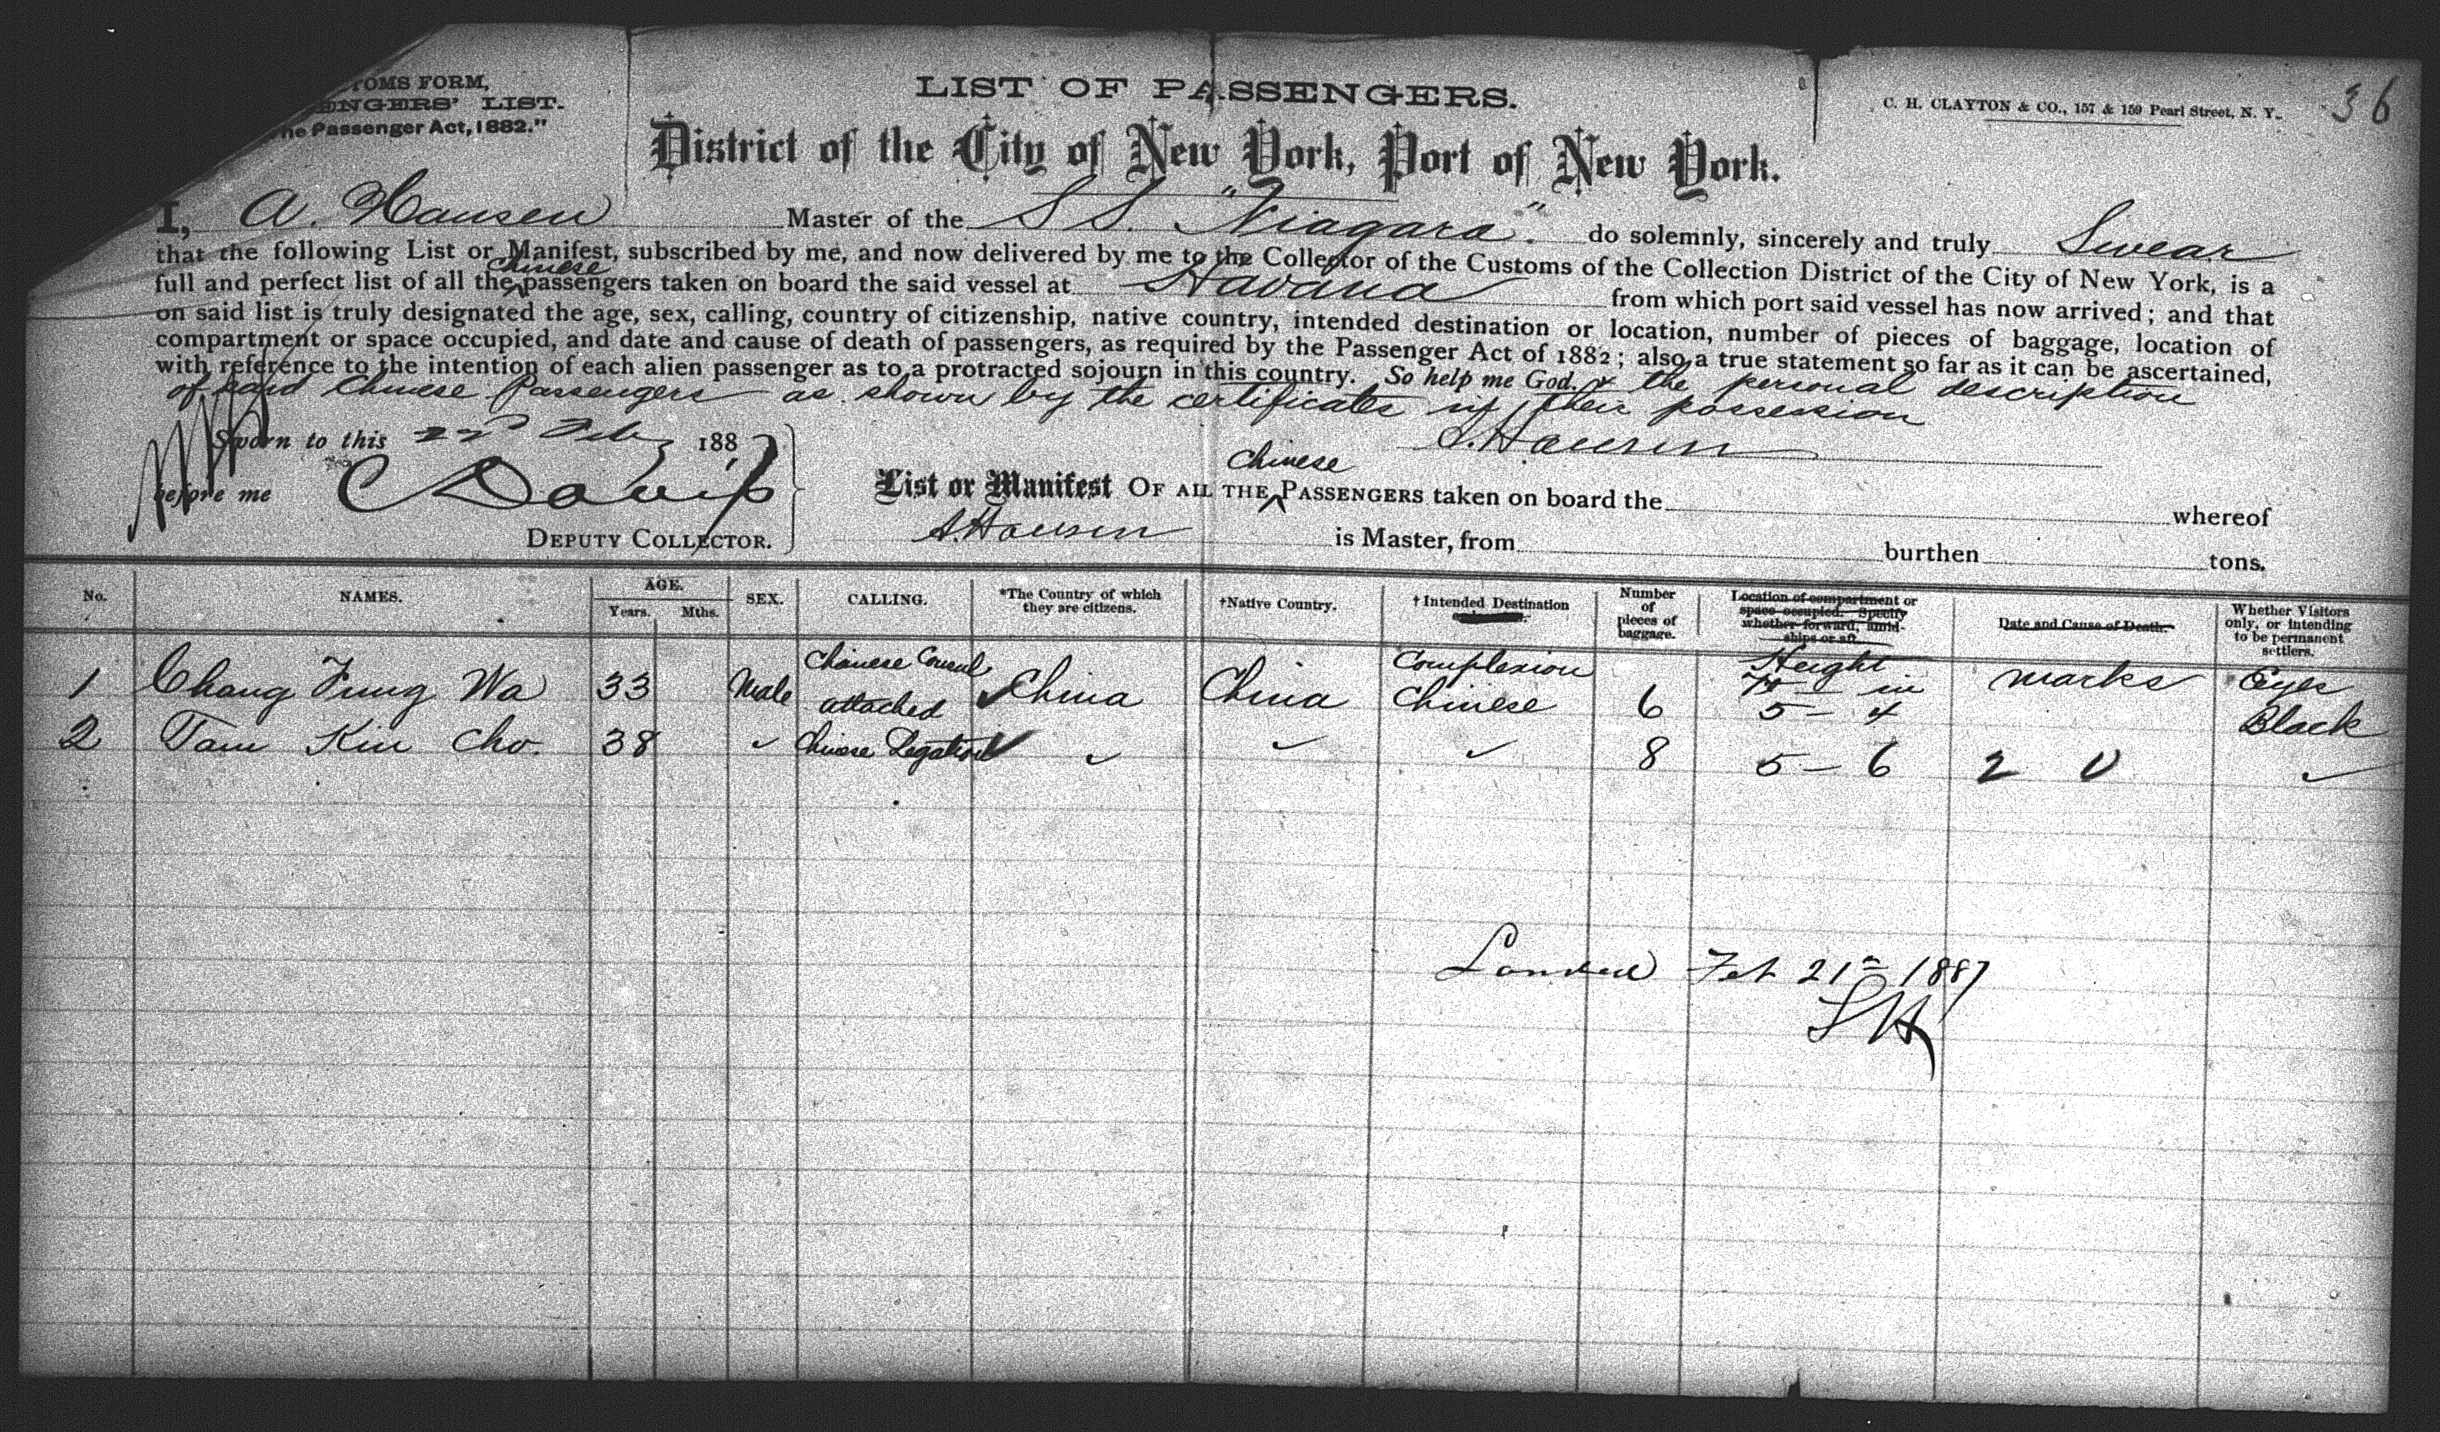 TOMS FORM,
ENGERS' LIST.
he Passenger Act, 1882."
LIST OF PASSENGERS.
C. H. CLAYTON & CO., 157 & 159 Pearl Street, N. Y.
36
District of the City of New York, Port of New York.
I, A. Hansen Master of the S S. "Niagara". do solemnly, sincerely and truly Swear
that the following List or Manifest, subscribed by me, and now delivered by me to the Collector of the Customs of the Collection District of the City of New York, is a
full and perfect list of all the Chinese passengers taken on board the said vessel at Havana from which port said vessel has now arrived; and that
on said list is truly designated the age, sex, calling, country of citizenship, native country, intended destination or location, number of pieces of baggage, location of
compartment or space occupied, and date and cause of death of passengers, as required by the Passenger Act of 1882; also a true statement so far as it can be ascertained,
with reference to the intention of each alien passenger as to a protracted sojourn in this country. So help me God. & the personal description
of said Chinese Passengers as shown by the certificates in their possession
Sworn to this 22d Feby 1887
A. Hansen
before me C Davis
DEPUTY COLLECTOR.
List or Manifest OF ALL THE Chinese PASSENGERS taken on board the whereof
A. Hansen is Master, from burthen tons.
No. NAMES. AGE. Years. Mths. SEX. CALLING. *The Country of which they are citizens. †Native Country. †Intended Destination Number of pieces of baggage. Location of compartment or space occupied. Specify whether forward, amidships or aft. Date and Cause of Death. Whether Visitors only, or intending to be permanent settlers.
Complexion Height marks Eyes
Ft — in
1 Chang Fung Wa 33 Male Chinese Consul attached China China Chinese 6 5 — 4 Black
2 Tam Kin Cho. 38 Chinese Legation 8 5 — 6 2
Landed Feb 21st 1887